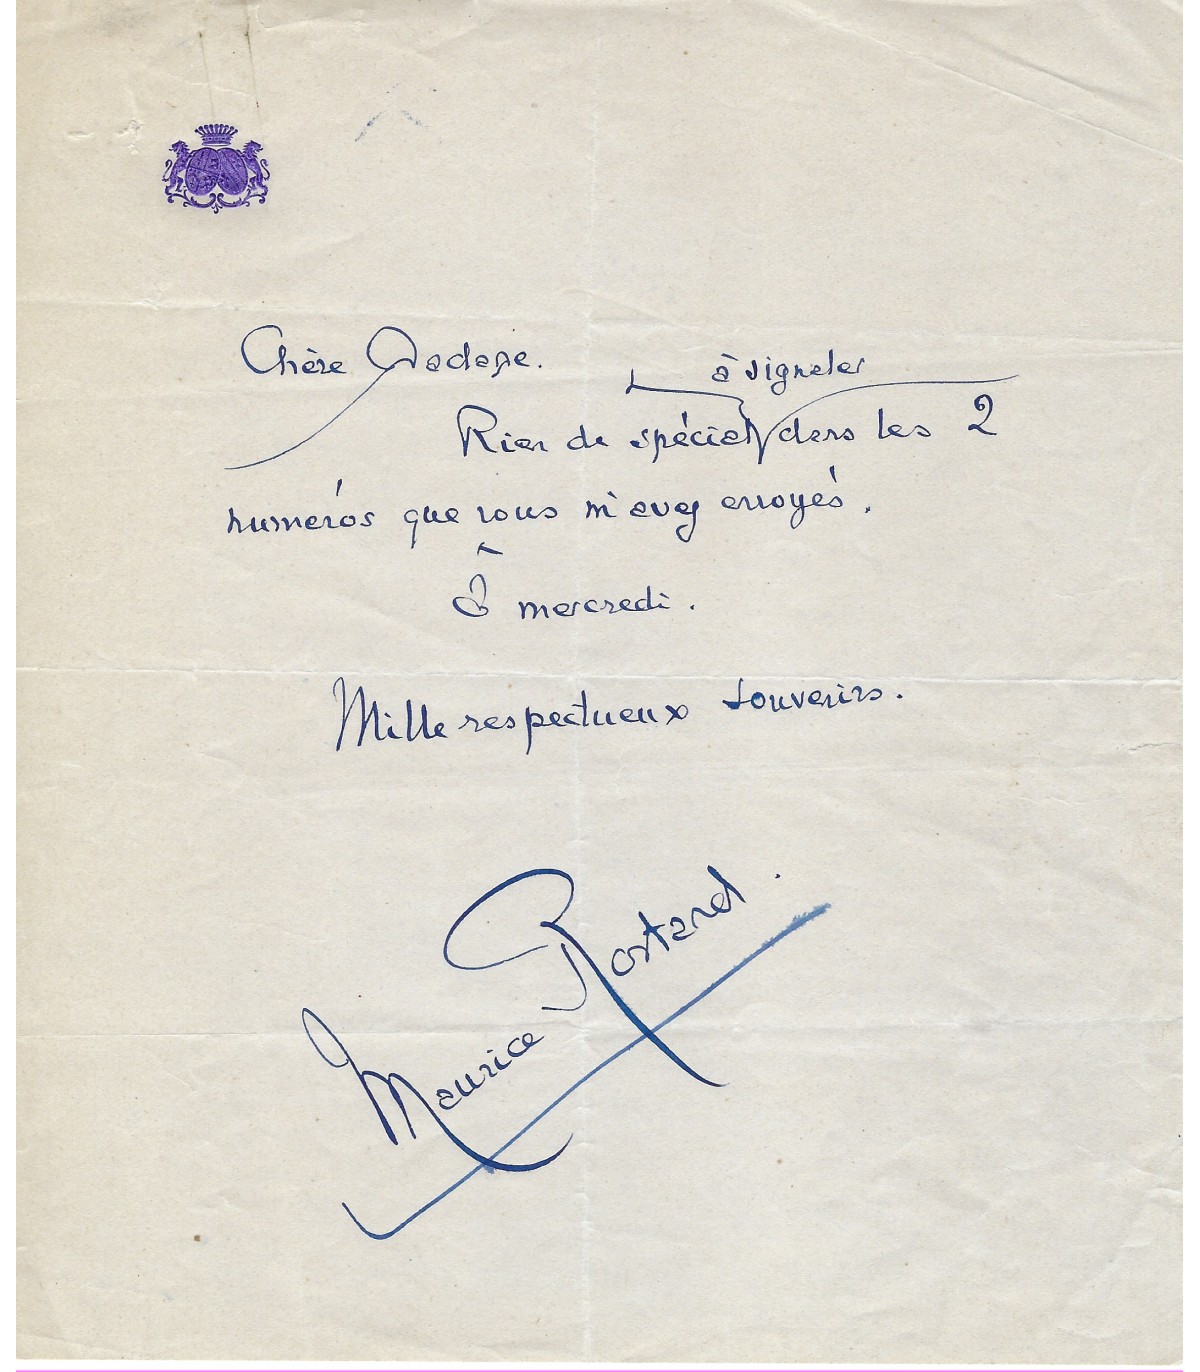 Chère Madame.
à signaler
Rien de spécial dans les 2
numéros que vous m'avez envoyés.
À mercredi.
Mille respectueux souvenirs.
Maurice Rostand.